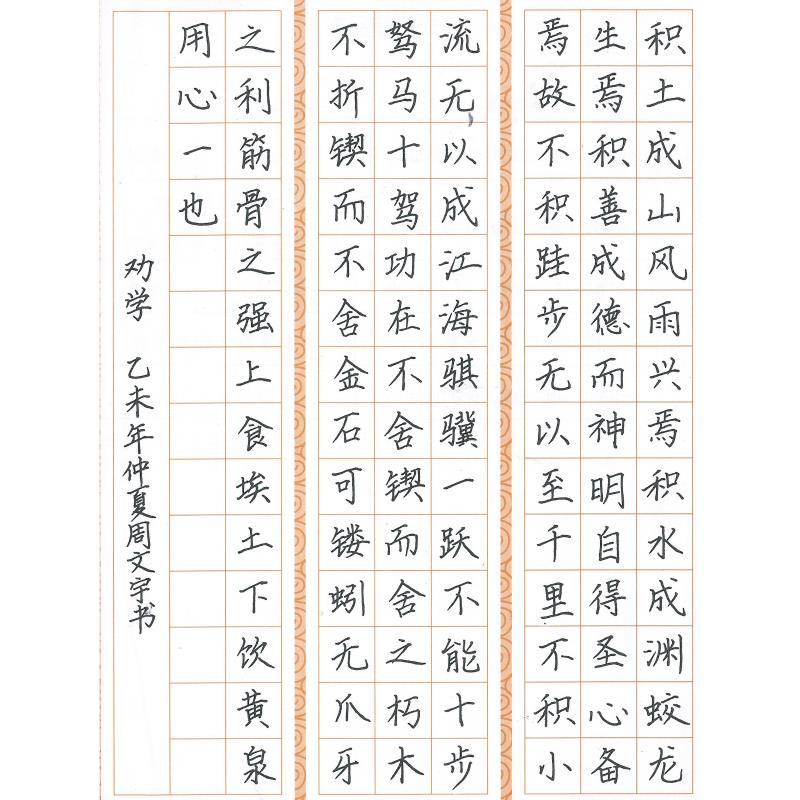 积土成山风雨兴焉积水成渊蛟龙
生焉积善成德而神明自得圣心备
焉故不积跬步无以至千里不积小
流无以成江海骐骥一跃不能十步
驽马十驾功在不舍锲而舍之朽木
不折锲而不舍金石可镂蚓无爪牙
之利筋骨之强上食埃土下饮黄泉
用心一也
劝学 乙未年仲夏周文宇书